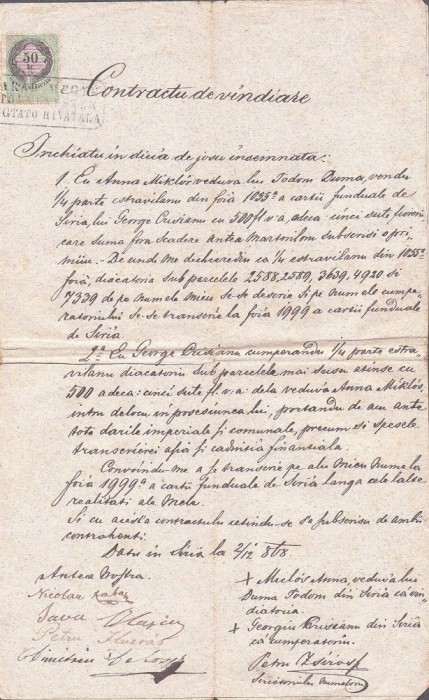 50
Contractu de vindiare
Inchiatu in diua de josu insemnata:
1. Eu Anna Miklós veduva lui Todom Duma, vendu
1/4 parte estravilanu din foia 1055ª a cartii funduale de
Siria, lui George Crisianu cu 500 fl v. a. adeca: cinci sute floreni
care suma fora scadere Antea Martorilor subscrisi o pri-
miiu. De und me dechieredu ca 1/4 estravilanu din 1055ª
foiă, diacatoria sub parcelele 2588, 2589, 3639, 4920 si
7339 de pe numele Mieu se-se descrie si pe numele cumpe-
ratoriului se-se transcrie la foia 1999 a cartii funduale
de Siria
2ª Eu George Crisianu cumperandu 1/4 parte estra-
vilanu diacatoriu sub parcelele mai susu atinse cu
500 adeca: cinci sute fl. v. a. dela veduva Anna Miklós,
intru delocu in posesiunea lui, portandu de acu ante
tote darile imperiale si comunale, precum si spesele
transcrierei
Convoindu me a se transcrie pe alu Mieu Nume la
foia 1999ª a cartii funduale de Siria langa celelalte
realitati ale Mele.
Si cu acesta contractulu cetindu-se sa subscrisu de ambii
contrahenti.
Datu in Siria la 2/12 868.
Antea Nostra.
Nicolae
Sava
Petru
Dimitriu
+ Miclós Anna, veduva lui
Duma Todom din Siria ca vin-
diatoria
+ Georgiu Criseanu din Siria
ca cumperatoriu.
Petru